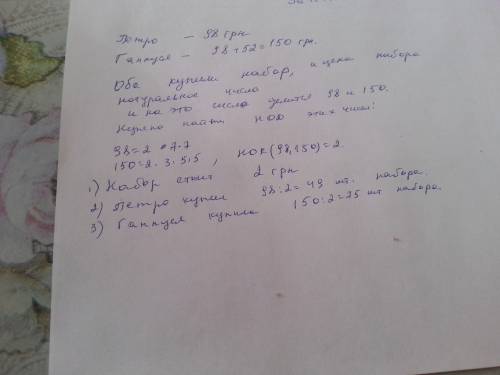 Петро — 98 грн
Ганнуся — 98+52=150 грн.
Оба купили набор, и цена набора
натуральное число
и на это число делится 98 и 150.
Нужно найти НОД этих чисел:
98=2*7.7
150=2.3.5.5, НОК(98,150)=2.
1) Набор стоит 2 грн
2) Петро купил 98:2=49 шт. набора.
3) Ганнуся купила 150:2=75 шт набора